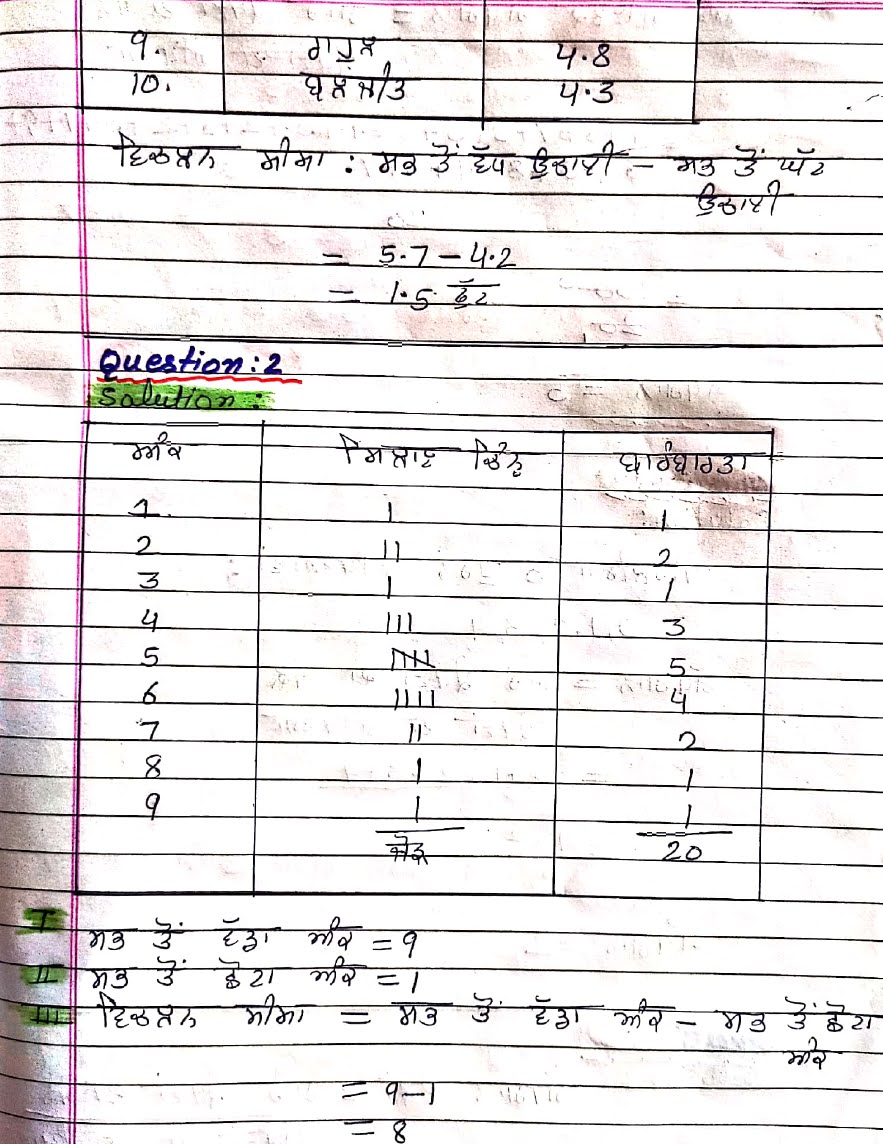 9. ਰਾਹੁਲ 4.8
10. ਬਲਜੀਤ 4.3
ਵਿਚਲਨ ਸੀਮਾ : ਸਭ ਤੋਂ ਵੱਧ ਉਚਾਈ – ਸਭ ਤੋਂ ਘੱਟ
ਉਚਾਈ
= 5.7 – 4.2
= 1.5 ਫੁੱਟ
Question:2
Solution :
ਅੰਕ ਮਿਲਾਣ ਚਿੰਨ੍ਹ ਬਾਰੰਬਾਰਤਾ
1. | 1
2 || 2
3 | 1
4 ||| 3
5 𝍸 5
6 |||| 4
7 || 2
8 | 1
9 | 1
ਜੋੜ 20
I ਸਭ ਤੋਂ ਵੱਡਾ ਅੰਕ = 9
II ਸਭ ਤੋਂ ਛੋਟਾ ਅੰਕ = 1
III ਵਿਚਲਨ ਸੀਮਾ = ਸਭ ਤੋਂ ਵੱਡਾ ਅੰਕ – ਸਭ ਤੋਂ ਛੋਟਾ
ਅੰਕ
= 9–1
= 8